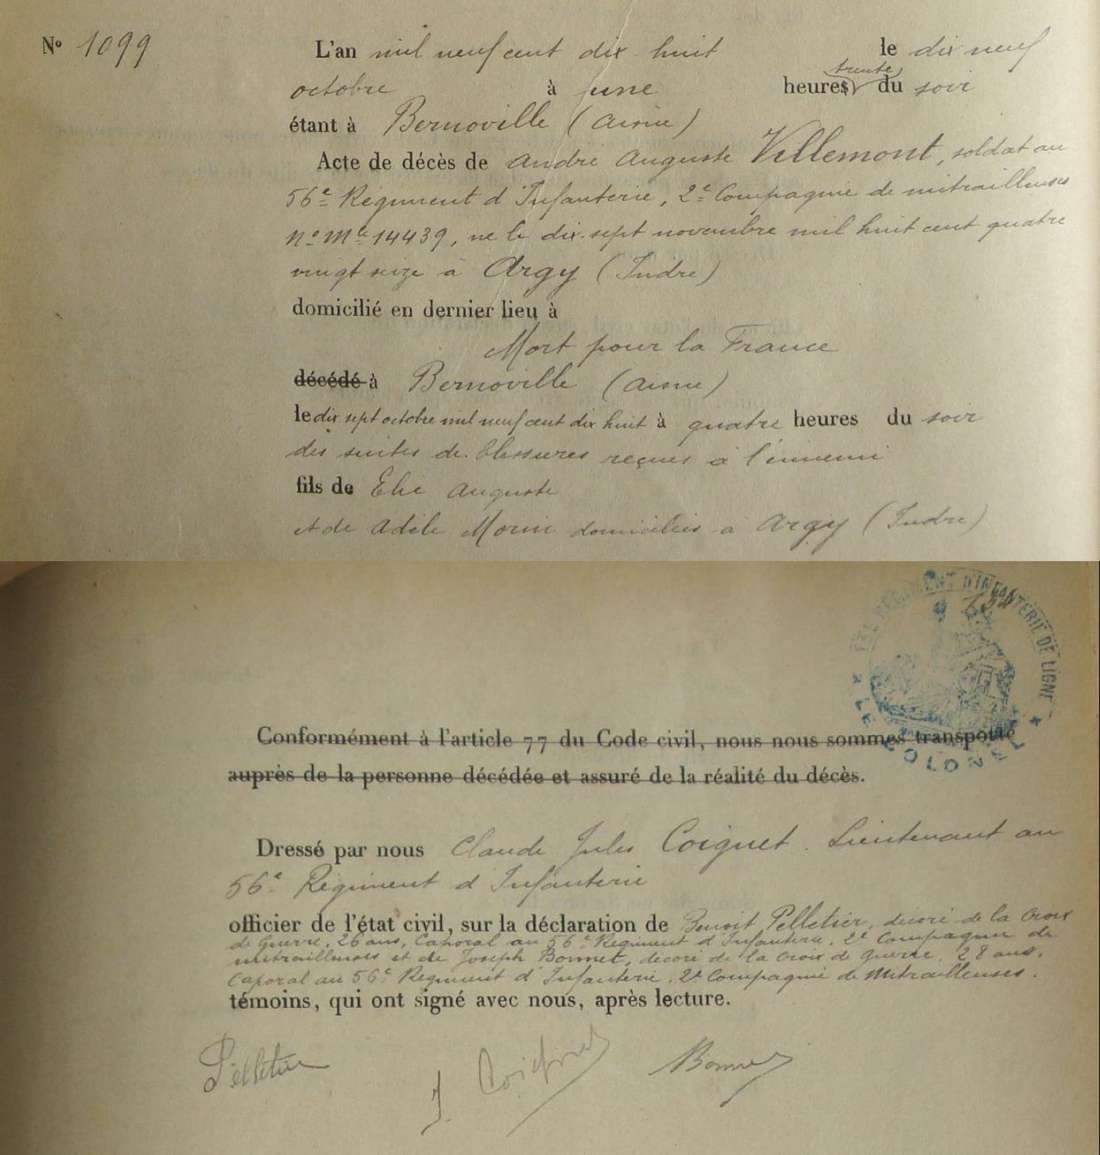 N° 1099
L'an mil neuf cent dix huit le dix neuf
octobre à une heures trente du soir
étant à Bernoville (Aisne)
Acte de décès de André Auguste Villemont, soldat au
56e Régiment d'Infanterie, 2e Compagnie de mitrailleuses
n° Mle 14439, né le dix-sept novembre mil huit cent quatre
vingt seize à Argy (Indre)
domicilié en dernier lieu à
Mort pour la France
décédé à Bernoville (Aisne)
le dix sept octobre mil neuf cent dix huit à quatre heures du soir
des suites de blessures reçues à l'ennemi
fils de Elie Auguste
et de Adèle Morin domiciliés à Argy (Indre)
RÉGIMENT D'INFANTERIE DE LIGNE
LE COLONEL
Conformément à l'article 77 du Code civil, nous nous sommes transporté
auprès de la personne décédée et assuré de la réalité du décès.
Dressé par nous Claude Jules Coignet. Lieutenant au
56e Régiment d'Infanterie
officier de l'état civil, sur la déclaration de Benoit Pelletier, décoré de la Croix
de Guerre, 26 ans, Caporal au 56e Régiment d'Infanterie, 2e Compagnie de
mitrailleuses et de Joseph Bonnet, décoré de la Croix de guerre, 28 ans,
Caporal au 56e Régiment d'Infanterie, 2e Compagnie de Mitrailleuses.
témoins, qui ont signé avec nous, après lecture.
Pelletier J. Coignet Bonnet